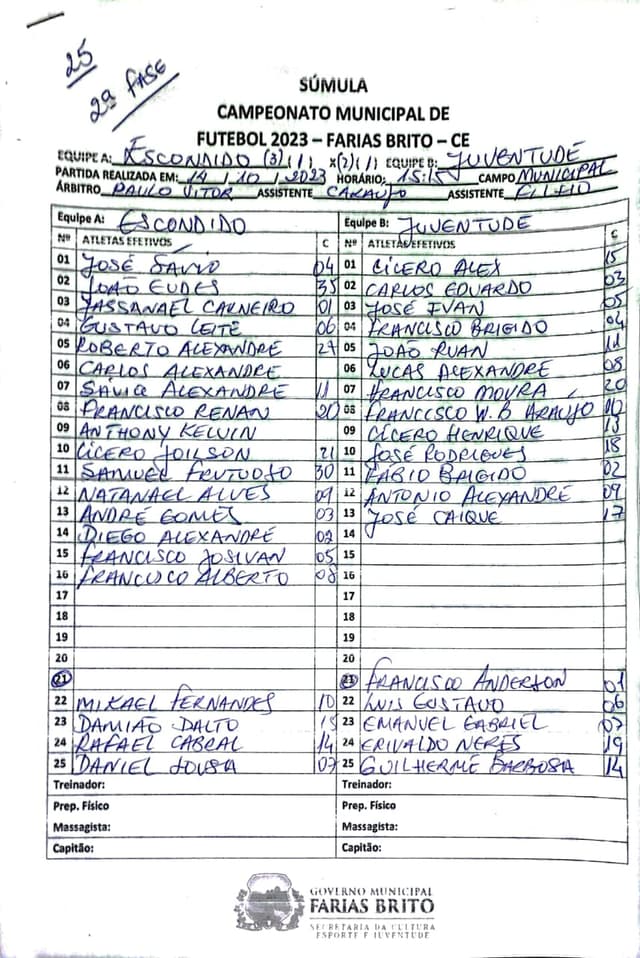 25
2ª FASE
SÚMULA
CAMPEONATO MUNICIPAL DE
FUTEBOL 2023 – FARIAS BRITO – CE
EQUIPE A: ESCONDIDO (3) ( / ) X(2)( / ) EQUIPE B: JUVENTUDE
PARTIDA REALIZADA EM: 14 / 10 / 2023 HORÁRIO: 15:15 CAMPO MUNICIPAL
ÁRBITRO PAULO VITOR ASSISTENTE CARAUJO ASSISTENTE
Equipe A: ESCONDIDO Equipe B: JUVENTUDE
Nº ATLETAS EFETIVOS C Nº ATLETAS EFETIVOS C
01 JOSÉ SAVIO 04 01 CÍCERO ALEX 15
02 JOÃO EUDES 35 02 CARLOS EDUARDO 03
03 JASSANAEL CARNEIRO 01 03 JOSÉ IVAN 05
04 GUSTAVO LEITE 06 04 FRANCISCO BRIGIDO 04
05 ROBERTO ALEXANDRE 27 05 JOÃO RUAN 11
06 CARLOS ALEXANDRE 06 LUCAS ALEXANDRE 08
07 SÁVIO ALEXANDRE 11 07 FRANCISCO MOURA 20
08 FRANCISCO RENAN 20 08 FRANCISCO W. B ARAUJO
09 ANTHONY KELVIN 09 CÍCERO HENRIQUE 13
10 CÍCERO JOILSON 21 10 JOSÉ RODRIGUES 18
11 SAMUEL FRUTUOSO 30 11 FÁBIO BRIGIDO 02
12 NATANAEL ALVES 09 12 ANTONIO ALEXANDRE 09
13 ANDRÉ GOMES 03 13 JOSÉ CAIQUE 17
14 DIEGO ALEXANDRE 02 14
15 FRANCISCO JOSIVAN 05 15
16 FRANCISCO ALBERTO 08 16
17 17
18 18
19 19
20 20
21 21 FRANCISCO ANDERSON 01
22 MIKAEL FERNANDES 10 22 LUIS GUSTAVO 06
23 DAMIÃO DALTO 23 EMANUEL GABRIEL 07
24 RAFAEL CABRAL 14 24 ERIVALDO NERES 19
25 DANIEL SOUSA 07 25 GUILHERME BARBOSA 14
Treinador: Treinador:
Prep. Físico Prep. Físico
Massagista: Massagista:
Capitão: Capitão:
GOVERNO MUNICIPAL
FARIAS BRITO
SECRETARIA DA CULTURA
ESPORTE E JUVENTUDE